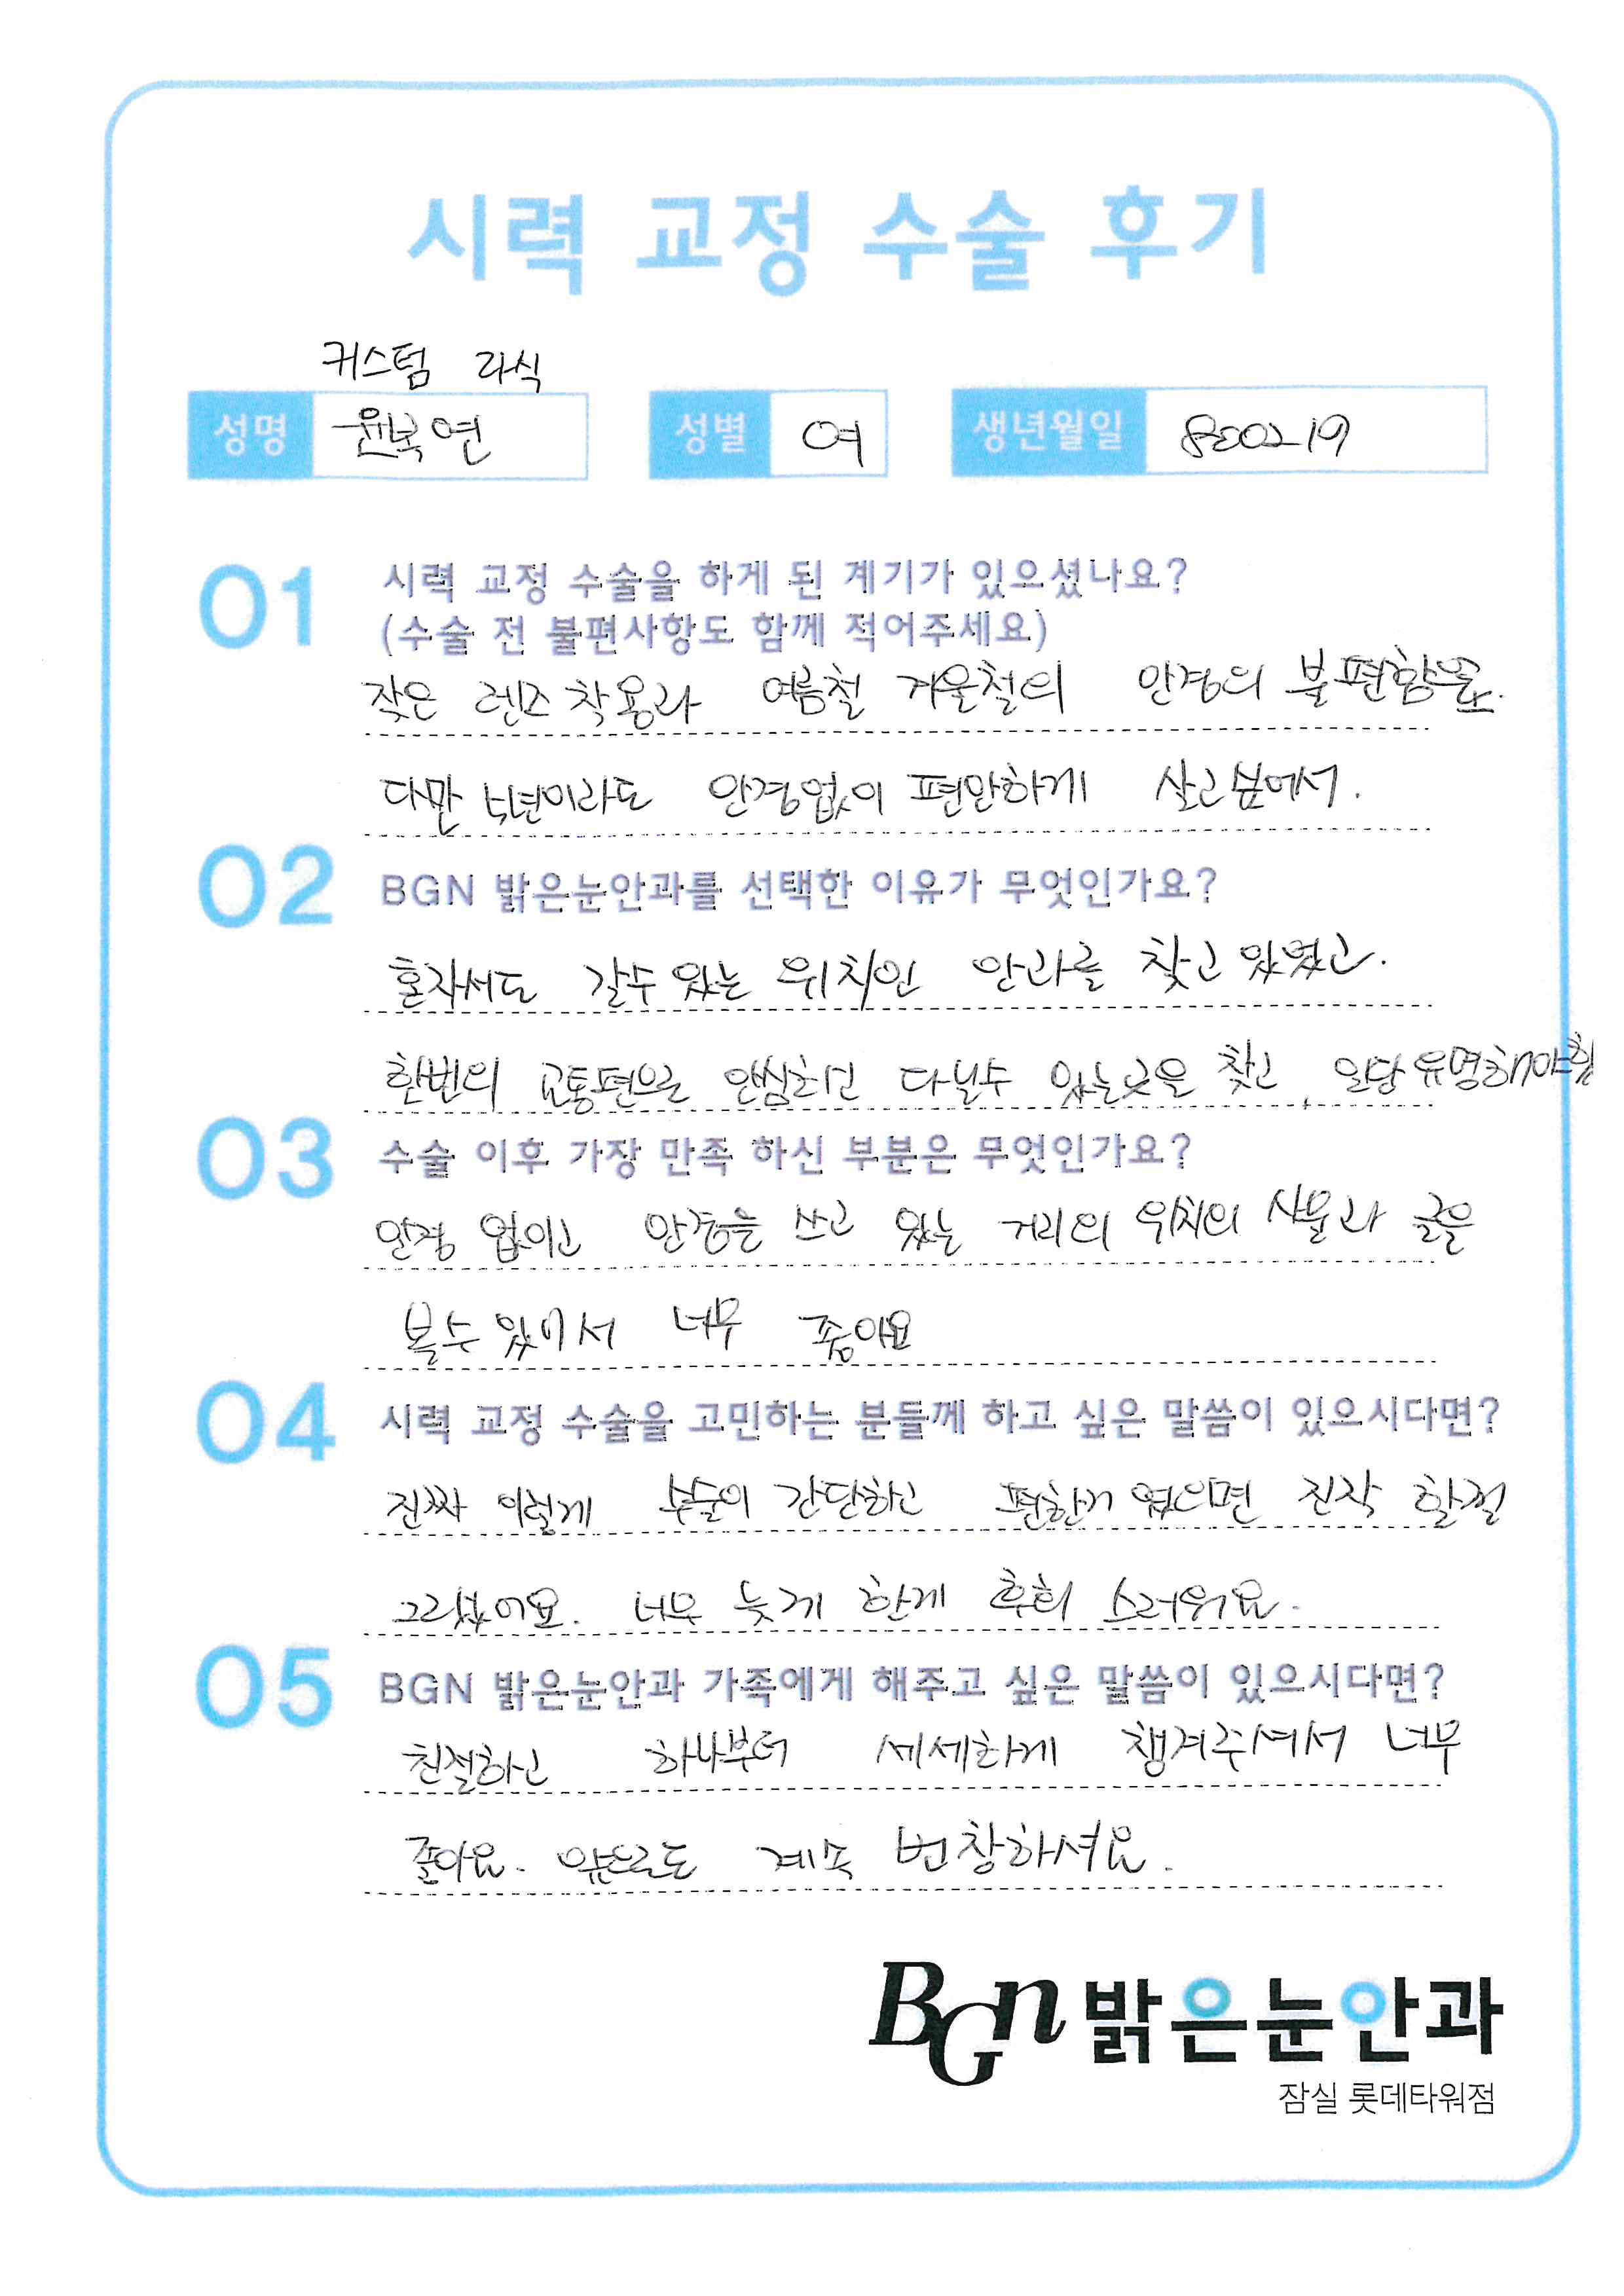 시력 교정 수술 후기
커스텀 라식
성명 윤복연 성별 여 생년월일 800219
01 시력 교정 수술을 하게 된 계기가 있으셨나요?
(수술 전 불편사항도 함께 적어주세요)
잦은 렌즈 착용과 여름철 겨울철의 안경의 불편함으로.
다만 몇년이라도 안경없이 편안하게 살고싶에서.
02 BGN 밝은눈안과를 선택한 이유가 무엇인가요?
혼자서도 갈수 있는 위치인 안과를 찾고 있었고.
한번의 교통편으로 안심하고 다닐수 있는곳을 찾고 일단 유명해야함
03 수술 이후 가장 만족 하신 부분은 무엇인가요?
안경 없이고 안경을 쓰고 있는 거리의 위치의 사물과 글을
볼수 있어서 너무 좋아요
04 시력 교정 수술을 고민하는 분들께 하고 싶은 말씀이 있으시다면?
진짜 이렇게 수술이 간단하고 편한거 였으면 진작 할껄
그랬어요. 너무 늦게 한게 후회 스러워요.
05 BGN 밝은눈안과 가족에게 해주고 싶은 말씀이 있으시다면?
친절하고 하나부터 세세하게 챙겨주셔서 너무
좋아요. 앞으로도 계속 번창하셔요.
BGN 밝은눈안과
잠실 롯데타워점